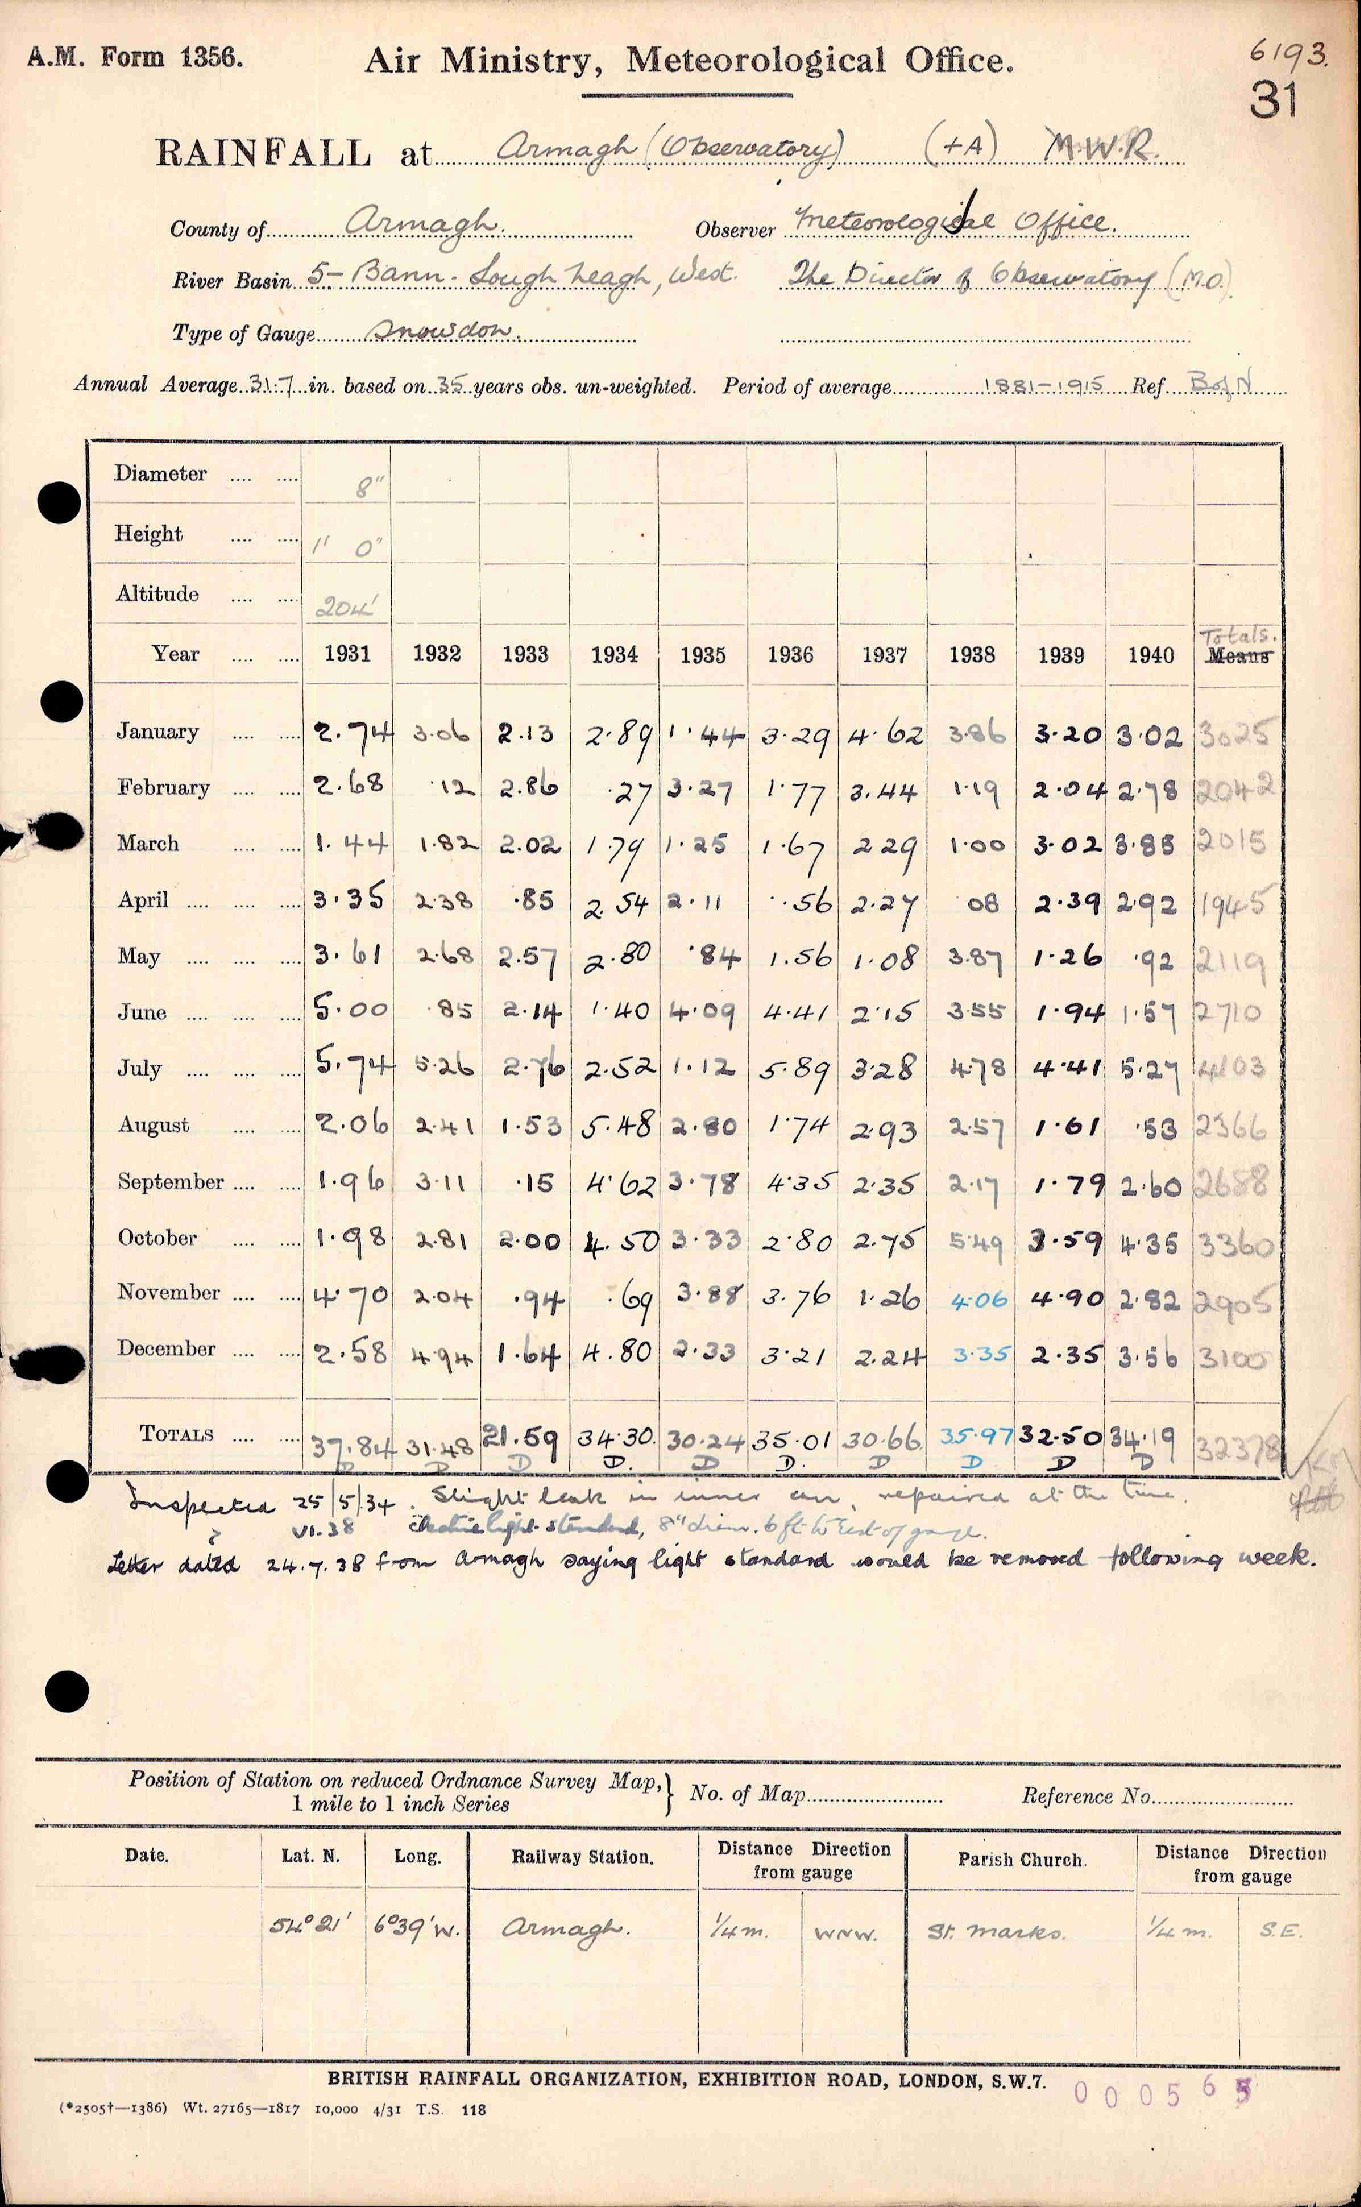 A.M. Form 1356.
Air Ministry, Meteorological Office.
6193.
31
RAINFALL at Armagh (Observatory) (+A) M.W.R.
County of Armagh. Observer Meteorological Office.
River Basin 5- Bann - Lough Neagh, West. The Director of Observatory (M.O.)
Type of Gauge Snowdon.
Annual Average 31.7 in. based on 35 years obs. un-weighted. Period of average 1881-1915 Ref. B of N
Diameter 8"
Height 1' 0"
Altitude 204'
Totals.
Year 1931 1932 1933 1934 1935 1936 1937 1938 1939 1940 Means
January 2.74 3.06 2.13 2.89 1.44 3.29 4.62 3.86 3.20 3.02 3025
February 2.68 .12 2.86 .27 3.27 1.77 3.44 1.19 2.04 2.78 2042
March 1.44 1.82 2.02 1.79 1.25 1.67 2.29 1.00 3.02 3.85 2015
April 3.35 2.38 .85 2.54 2.11 .56 2.27 08 2.39 2.92 1945
May 3.61 2.68 2.57 2.80 .84 1.56 1.08 3.87 1.26 .92 2119
June 5.00 .85 2.14 1.40 4.09 4.41 2.15 3.55 1.94 1.57 2710
July 5.74 5.26 2.76 2.52 1.12 5.89 3.28 4.78 4.41 5.27 4103
August 2.06 2.41 1.53 5.48 2.80 1.74 2.93 2.57 1.61 .53 2366
September 1.96 3.11 .15 4.62 3.78 4.35 2.35 2.17 1.79 2.60 2688
October 1.98 2.81 2.00 4.50 3.33 2.80 2.75 5.49 3.59 4.35 3360
November 4.70 2.04 .94 .69 3.88 3.76 1.26 4.06 4.90 2.82 2905
December 2.58 4.94 1.64 4.80 2.33 3.21 2.24 3.35 2.35 3.56 3100
TOTALS 37.84 31.48 21.59 34.30 30.24 35.01 30.66 35.97 32.50 34.19 32378
D D D D. D D. D D D D
Inspected 25/5/34. Slight leak in inner can, repaired at the time.
? VI.38 Electric light standard, 8" diam. 6 ft to East of gauge.
Letter dated 24.7.38 from Armagh saying light standard would be removed following week.
Position of Station on reduced Ordnance Survey Map, 1 mile to 1 inch Series } No. of Map Reference No.
Date. Lat. N. Long. Railway Station. Distance Direction from gauge Parish Church. Distance Direction from gauge
54° 21' 6° 39' W. Armagh. 1/4 m. WNW. St. Marks. 1/4 m. S.E.
BRITISH RAINFALL ORGANIZATION, EXHIBITION ROAD, LONDON, S.W.7.
(*2505†—1386) Wt. 27165—1817 10,000 4/31 T.S. 118